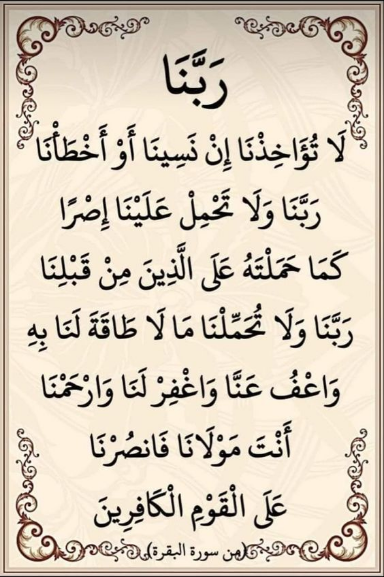 رَبَّنَا
لَا تُؤَاخِذْنَا إِنْ نَسِينَا أَوْ أَخْطَأْنَا
رَبَّنَا وَلَا تَحْمِلْ عَلَيْنَا إِصْرًا
كَمَا حَمَلْتَهُ عَلَى الَّذِينَ مِنْ قَبْلِنَا
رَبَّنَا وَلَا تُحَمِّلْنَا مَا لَا طَاقَةَ لَنَا بِهِ
وَاعْفُ عَنَّا وَاغْفِرْ لَنَا وَارْحَمْنَا
أَنْتَ مَوْلَانَا فَانصُرْنَا
عَلَى الْقَوْمِ الْكَافِرِينَ
(من سورة البقرة)